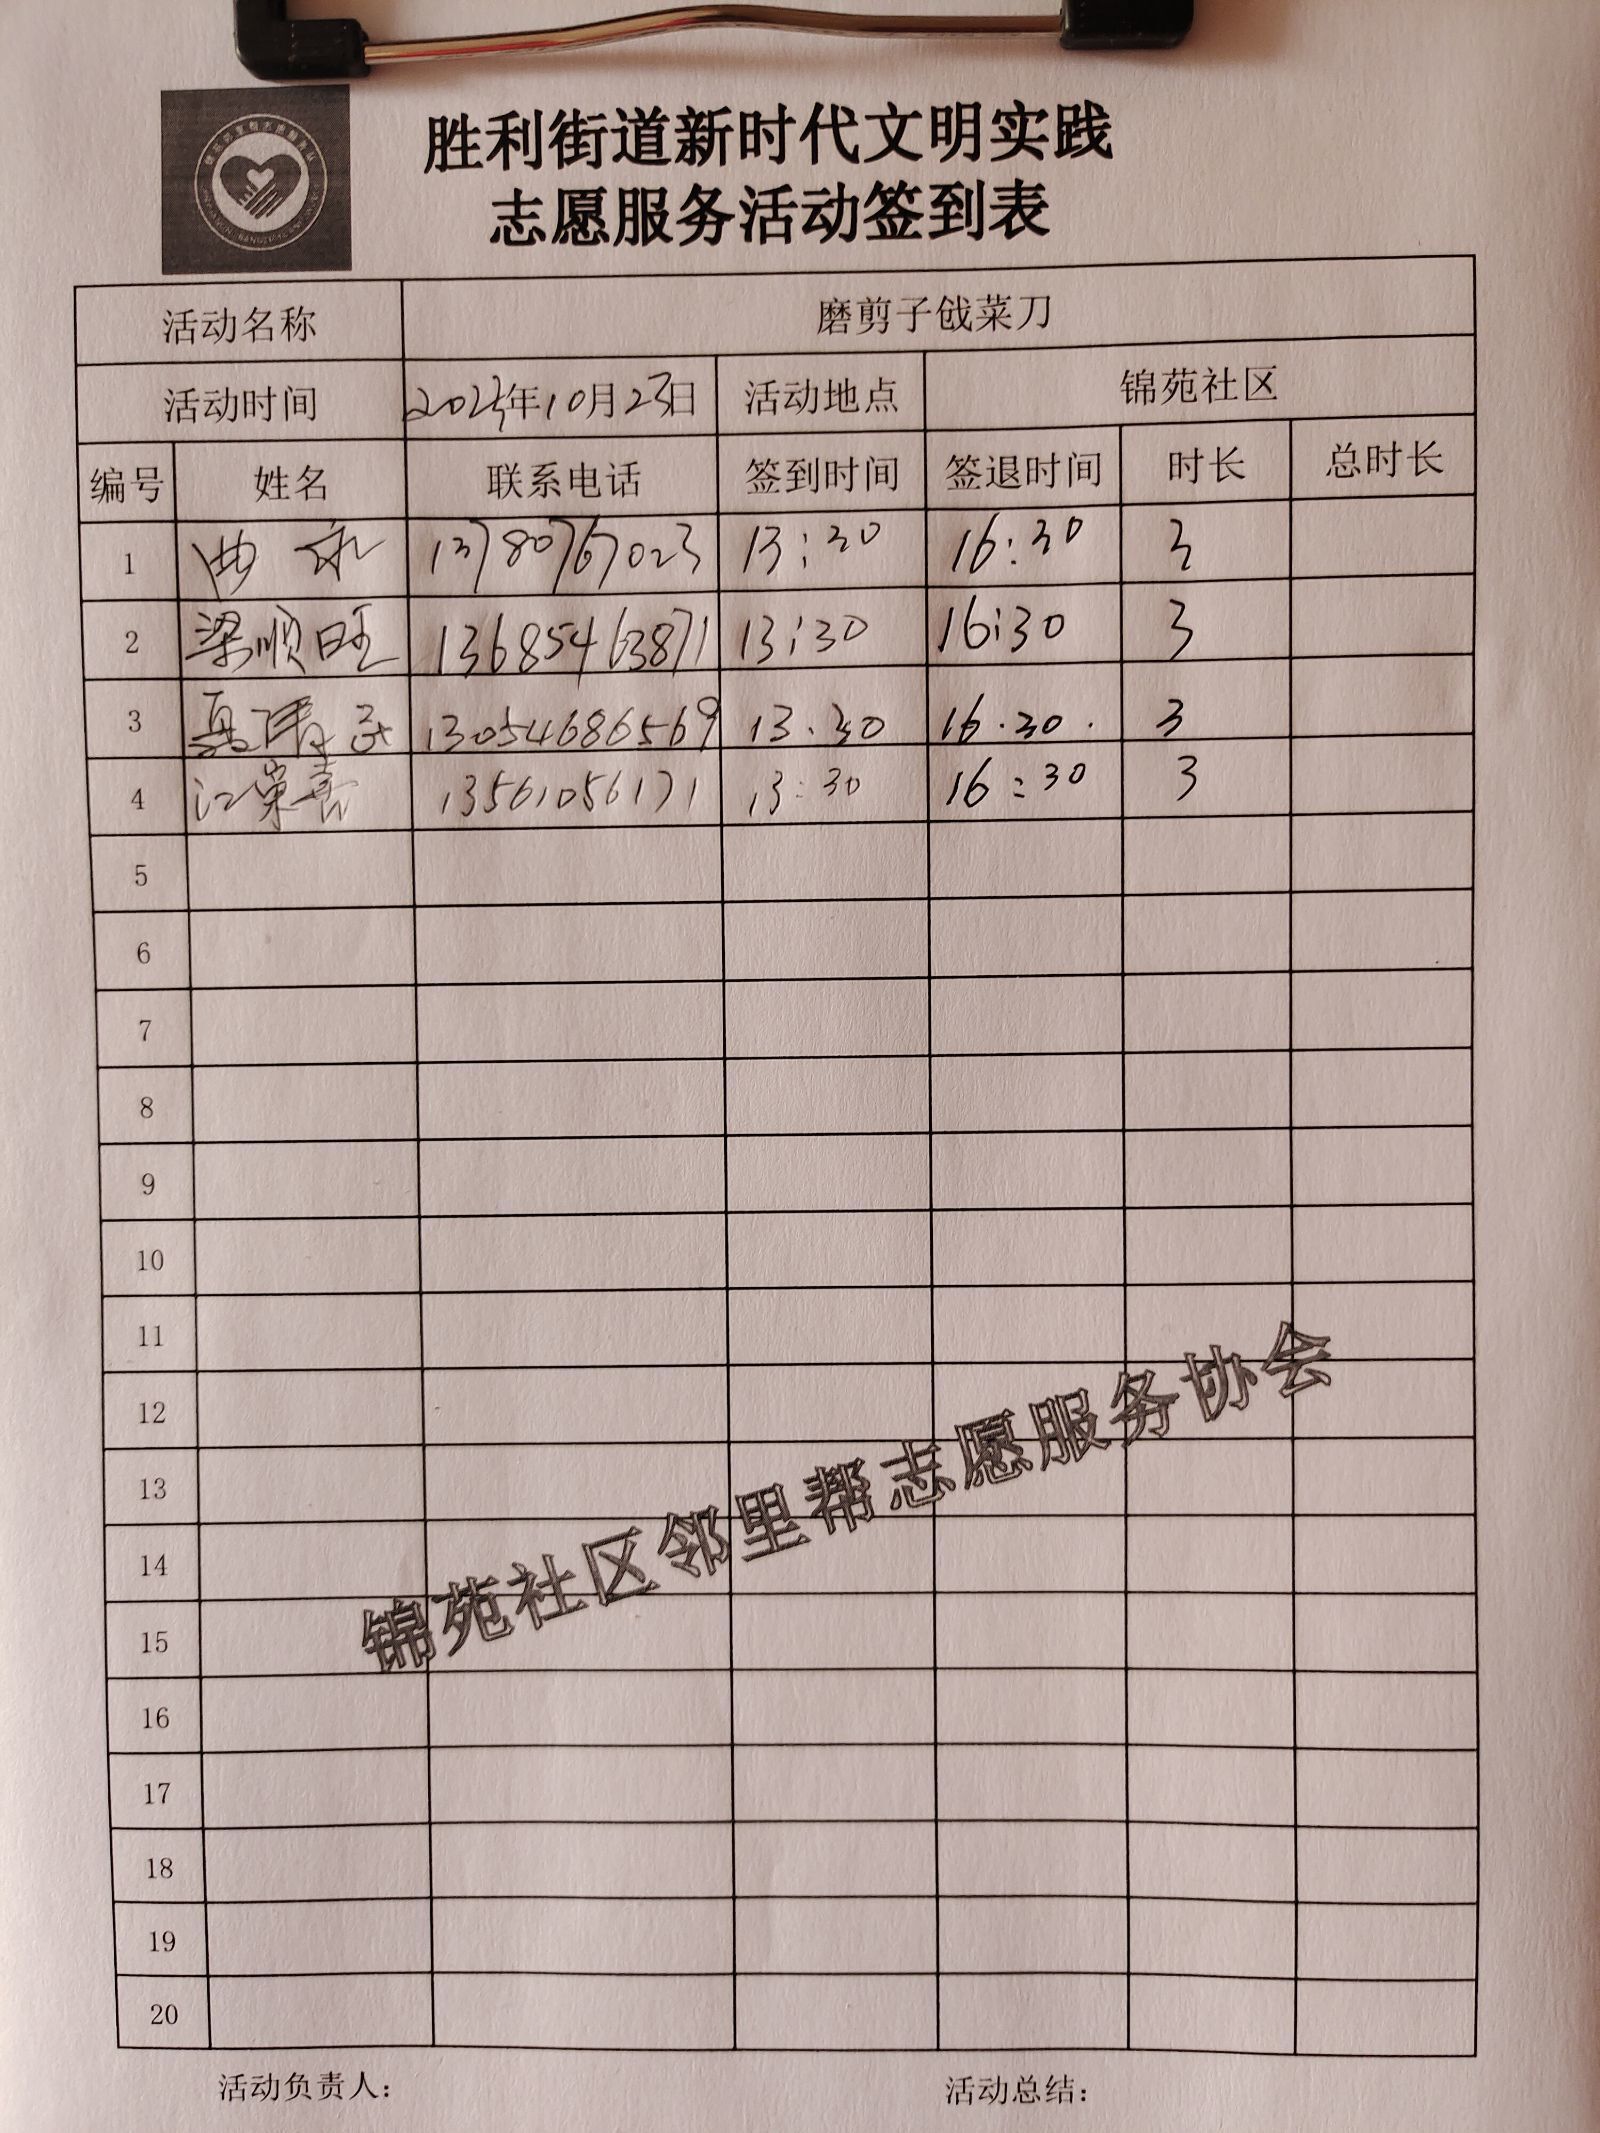 胜利街道新时代文明实践
志愿服务活动签到表
活动名称 磨剪子戗菜刀
活动时间 2023年10月23日 活动地点 锦苑社区
编号 姓名 联系电话 签到时间 签退时间 时长 总时长
1 曲 13780767023 13:30 16:30 3
2 梁顺旺 13685463871 13:30 16:30 3
3 13054686569 13.30 16.30. 3
4 江荣喜 13561056171 13:30 16:30 3
5
6
7
8
9
10
11
12
13
14
15
16
17
18
19
20
锦苑社区邻里帮志愿服务协会
活动负责人: 活动总结: